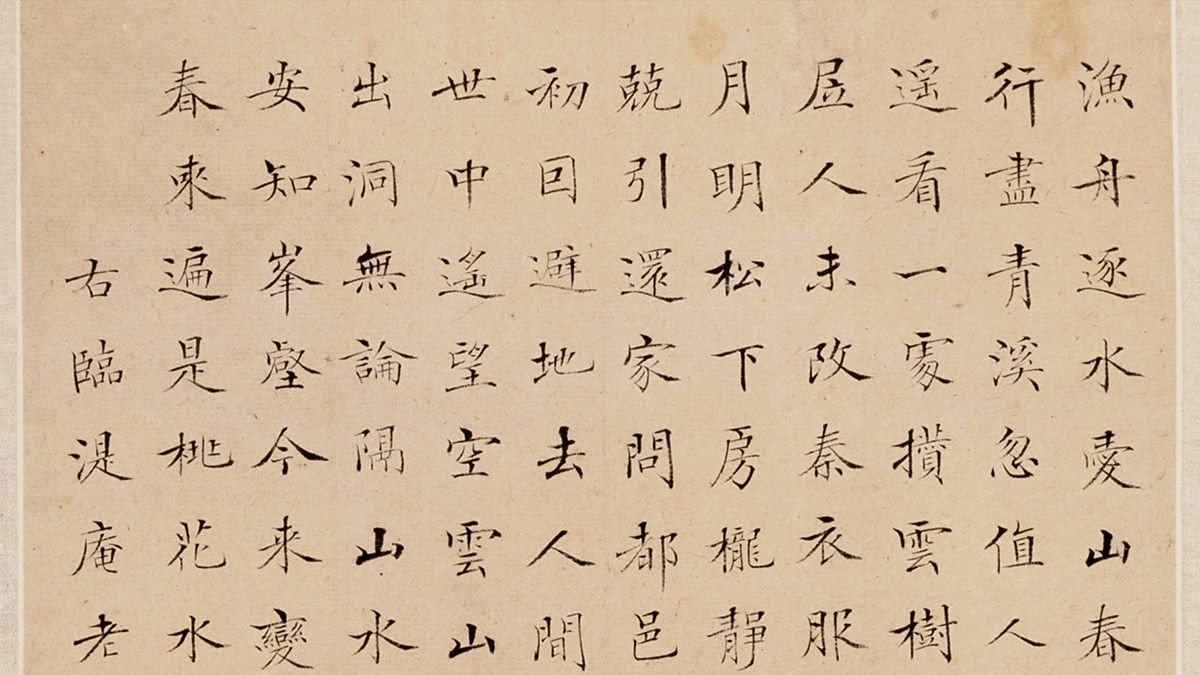 漁舟逐水愛山春
行盡青溪忽值人
遥看一處攢雲樹
居人未改秦衣服
月明松下房櫳靜
兢引還家問都邑
初回避地去人間
世中遙望空雲山
出洞無論隔山水
安知峯壑今来變
春來遍是桃花水
右臨湜庵老